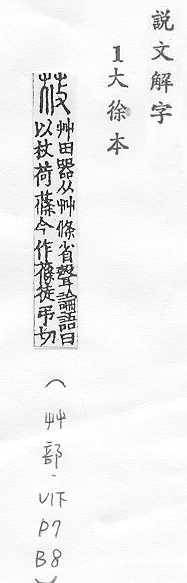 說文解字
1大徐本
莜
艸田器从艸條省聲論語曰
以杖荷蓧今作蓧徒弔切
（艸部、下P7B8）